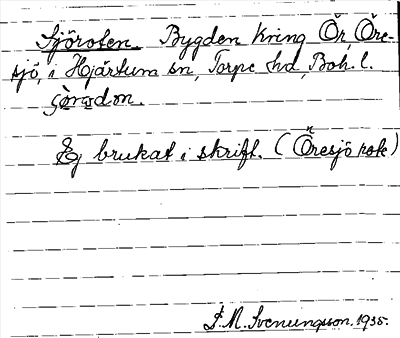 Sjöroten. Bygden kring Ör, Öre-
sjö, i Hjärtum sn, Torpe hd, Boh. l.
Ej brukat i skrift. (Öresjö rote)
S. M. Svenungsson. 1935.